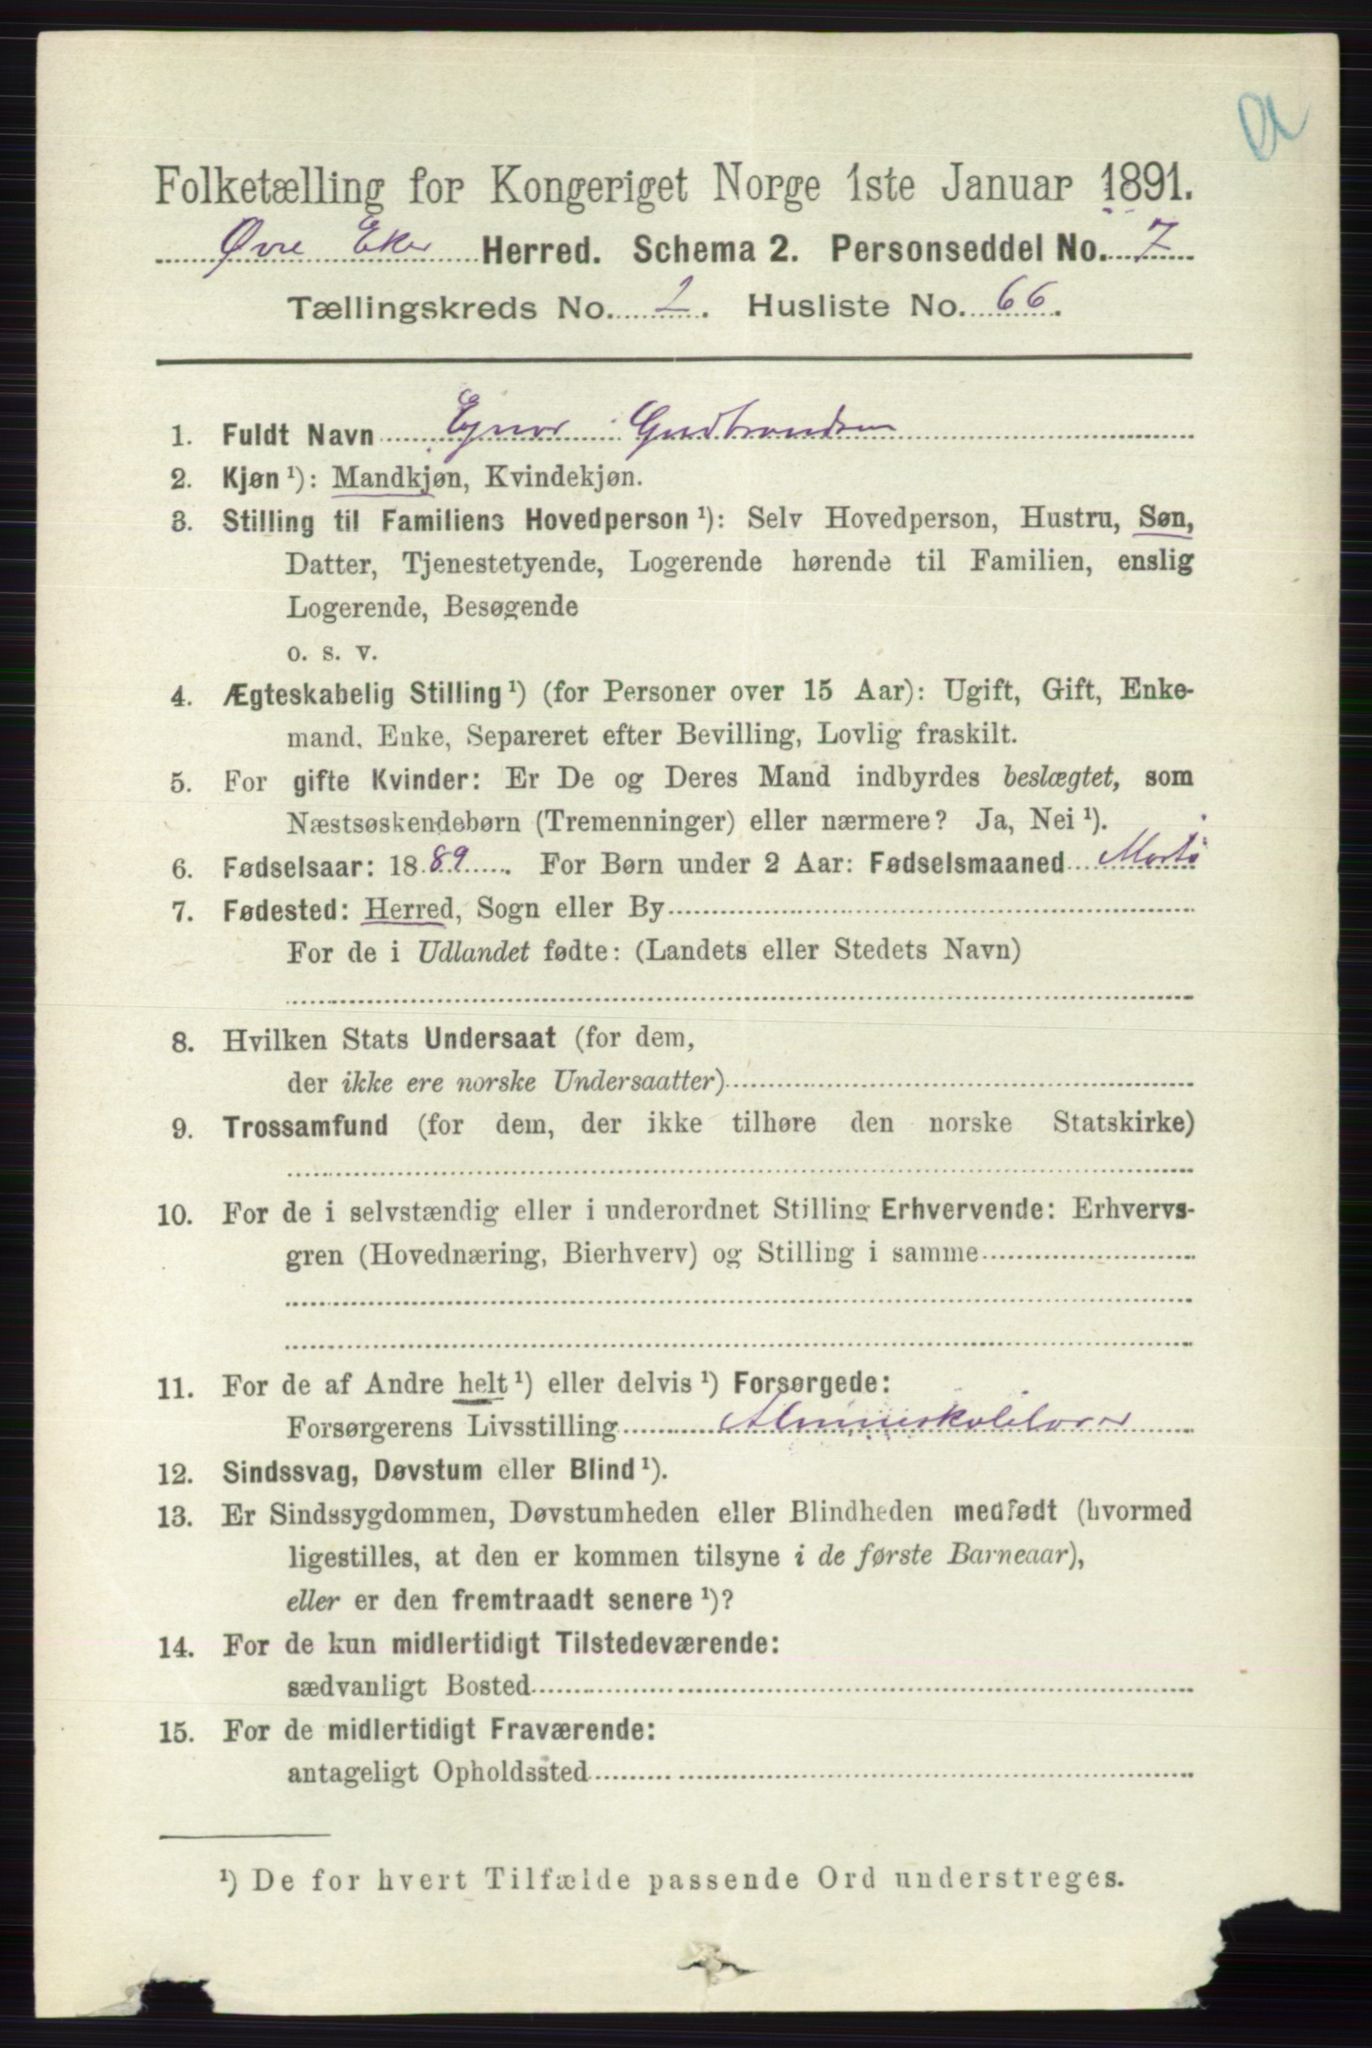 a
Folketælling for Kongeriget Norge 1ste Januar 1891.
Øvre Eker Herred. Schema 2. Personseddel No. 7
Tællingskreds No. 2. Husliste No. 66.
1. Fuldt Navn Eynor Gudbrandsen
2. Kjøn ¹): Mandkjøn, Kvindekjøn.
3. Stilling til Familiens Hovedperson ¹): Selv Hovedperson, Hustru, Søn,
Datter, Tjenestetyende, Logerende hørende til Familien, enslig
Logerende, Besøgende
o. s. v.
4. Ægteskabelig Stilling ¹) (for Personer over 15 Aar): Ugift, Gift, Enke-
mand, Enke, Separeret efter Bevilling, Lovlig fraskilt.
5. For gifte Kvinder: Er De og Deres Mand indbyrdes beslægtet, som
Næstsøskendebørn (Tremenninger) eller nærmere? Ja, Nei ¹).
6. Fødselsaar: 1889. For Børn under 2 Aar: Fødselsmaaned Marts
7. Fødested: Herred, Sogn eller By
For de i Udlandet fødte: (Landets eller Stedets Navn)
8. Hvilken Stats Undersaat (for dem,
der ikke ere norske Undersaatter)
9. Trossamfund (for dem, der ikke tilhøre den norske Statskirke)
10. For de i selvstændig eller i underordnet Stilling Erhvervende: Erhvervs-
gren (Hovednæring, Bierhverv) og Stilling i samme
11. For de af Andre helt ¹) eller delvis ¹) Forsørgede:
Forsørgerens Livsstilling
12. Sindssvag, Døvstum eller Blind ¹).
13. Er Sindssygdommen, Døvstumheden eller Blindheden medfødt (hvormed
ligestilles, at den er kommen tilsyne i de første Barneaar),
eller er den fremtraadt senere ¹)?
14. For de kun midlertidigt Tilstedeværende:
sædvanligt Bosted
15. For de midlertidigt Fraværende:
antageligt Opholdssted
¹) De for hvert Tilfælde passende Ord understreges.